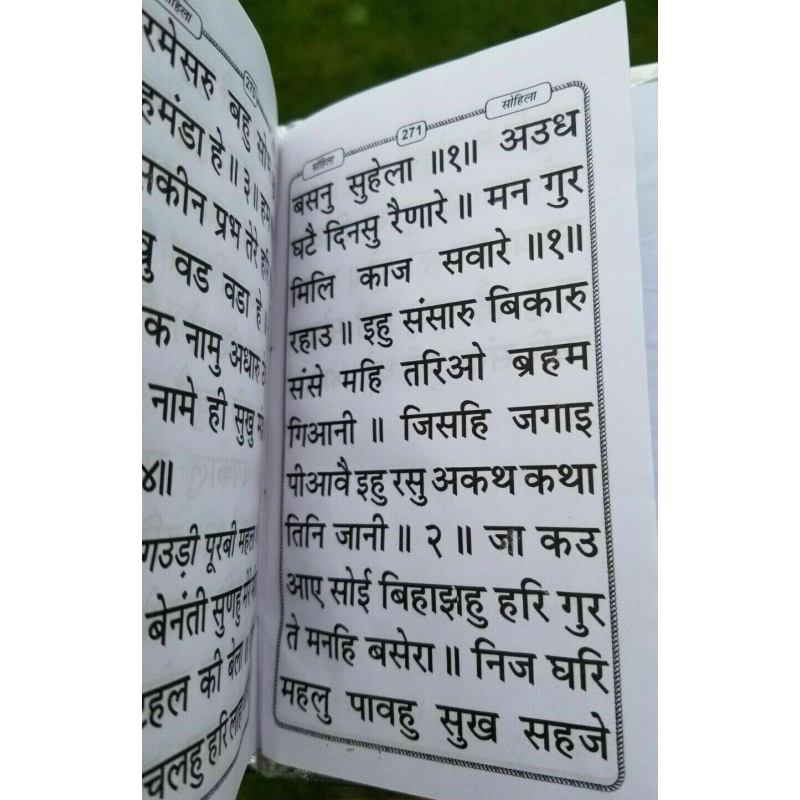 रमेसरु बहु
हमंडा हे ॥ ३॥
प्रभ तेरे
वड वडा हे
क नामु अधारु
नामे ही सुखु
४॥
गउड़ी पूरबी
बेनंती सुणहु मेरे
टहल की बेला ॥
चलहु हरि
सोहिला 271 सोहिला
बसनु सुहेला ॥१॥ अउध
घटै दिनसु रैणारे ॥ मन गुर
मिलि काज सवारे ॥१॥
रहाउ ॥ इहु संसारु बिकारु
संसे महि तरिओ ब्रहम
गिआनी ॥ जिसहि जगाइ
पीआवै इहु रसु अकथ कथा
तिनि जानी ॥ २ ॥ जा कउ
आए सोई बिहाझहु हरि गुर
ते मनहि बसेरा ॥ निज घरि
महलु पावहु सुख सहजे